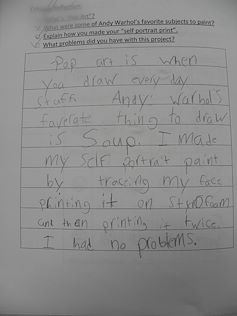 What is "Pop Art"?
What were some of Andy Warhol's favorite subjects to paint?
Explain how you made your "self portrait print".
What problems did you have with this project?
Pop art is when
you draw every day
stuff Andy Warhol's
faverate thing to draw
is Soup. I made
my self portrait paint
by traceing my face
printing it on styrofoam
and then printing it twice.
I had no problems.